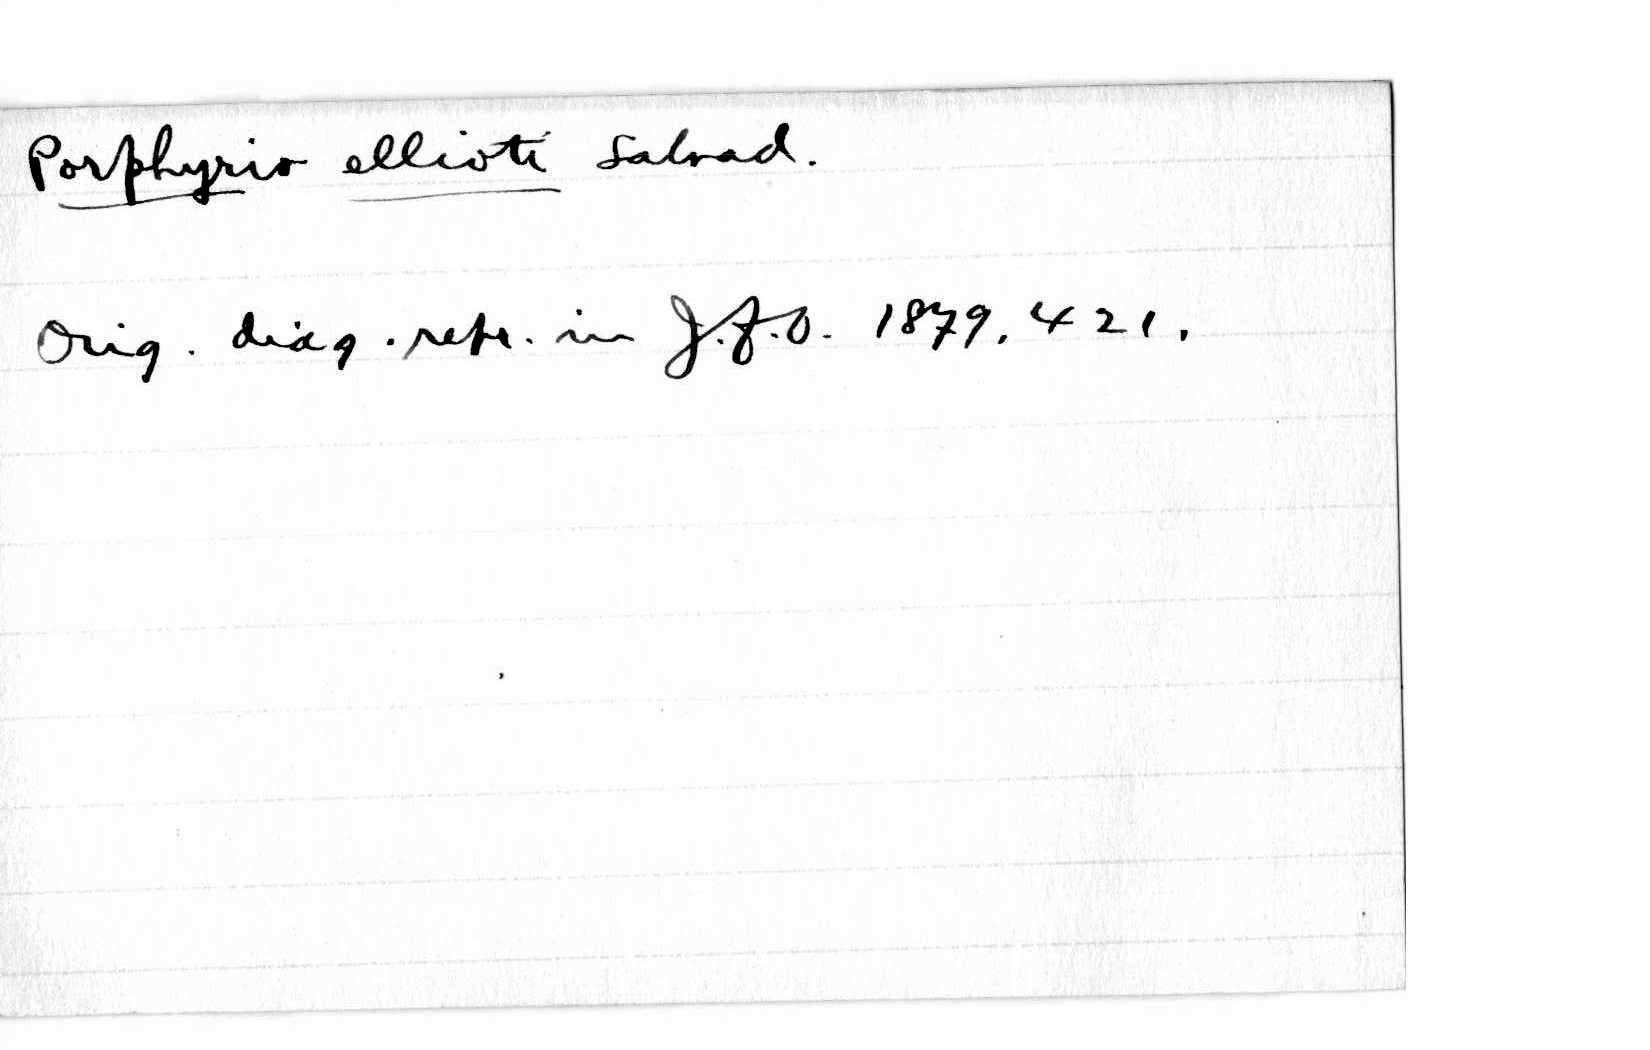 Porphyrio ellioti Salvad.
Orig. diag. repr. in J.f.O. 1879, 421.